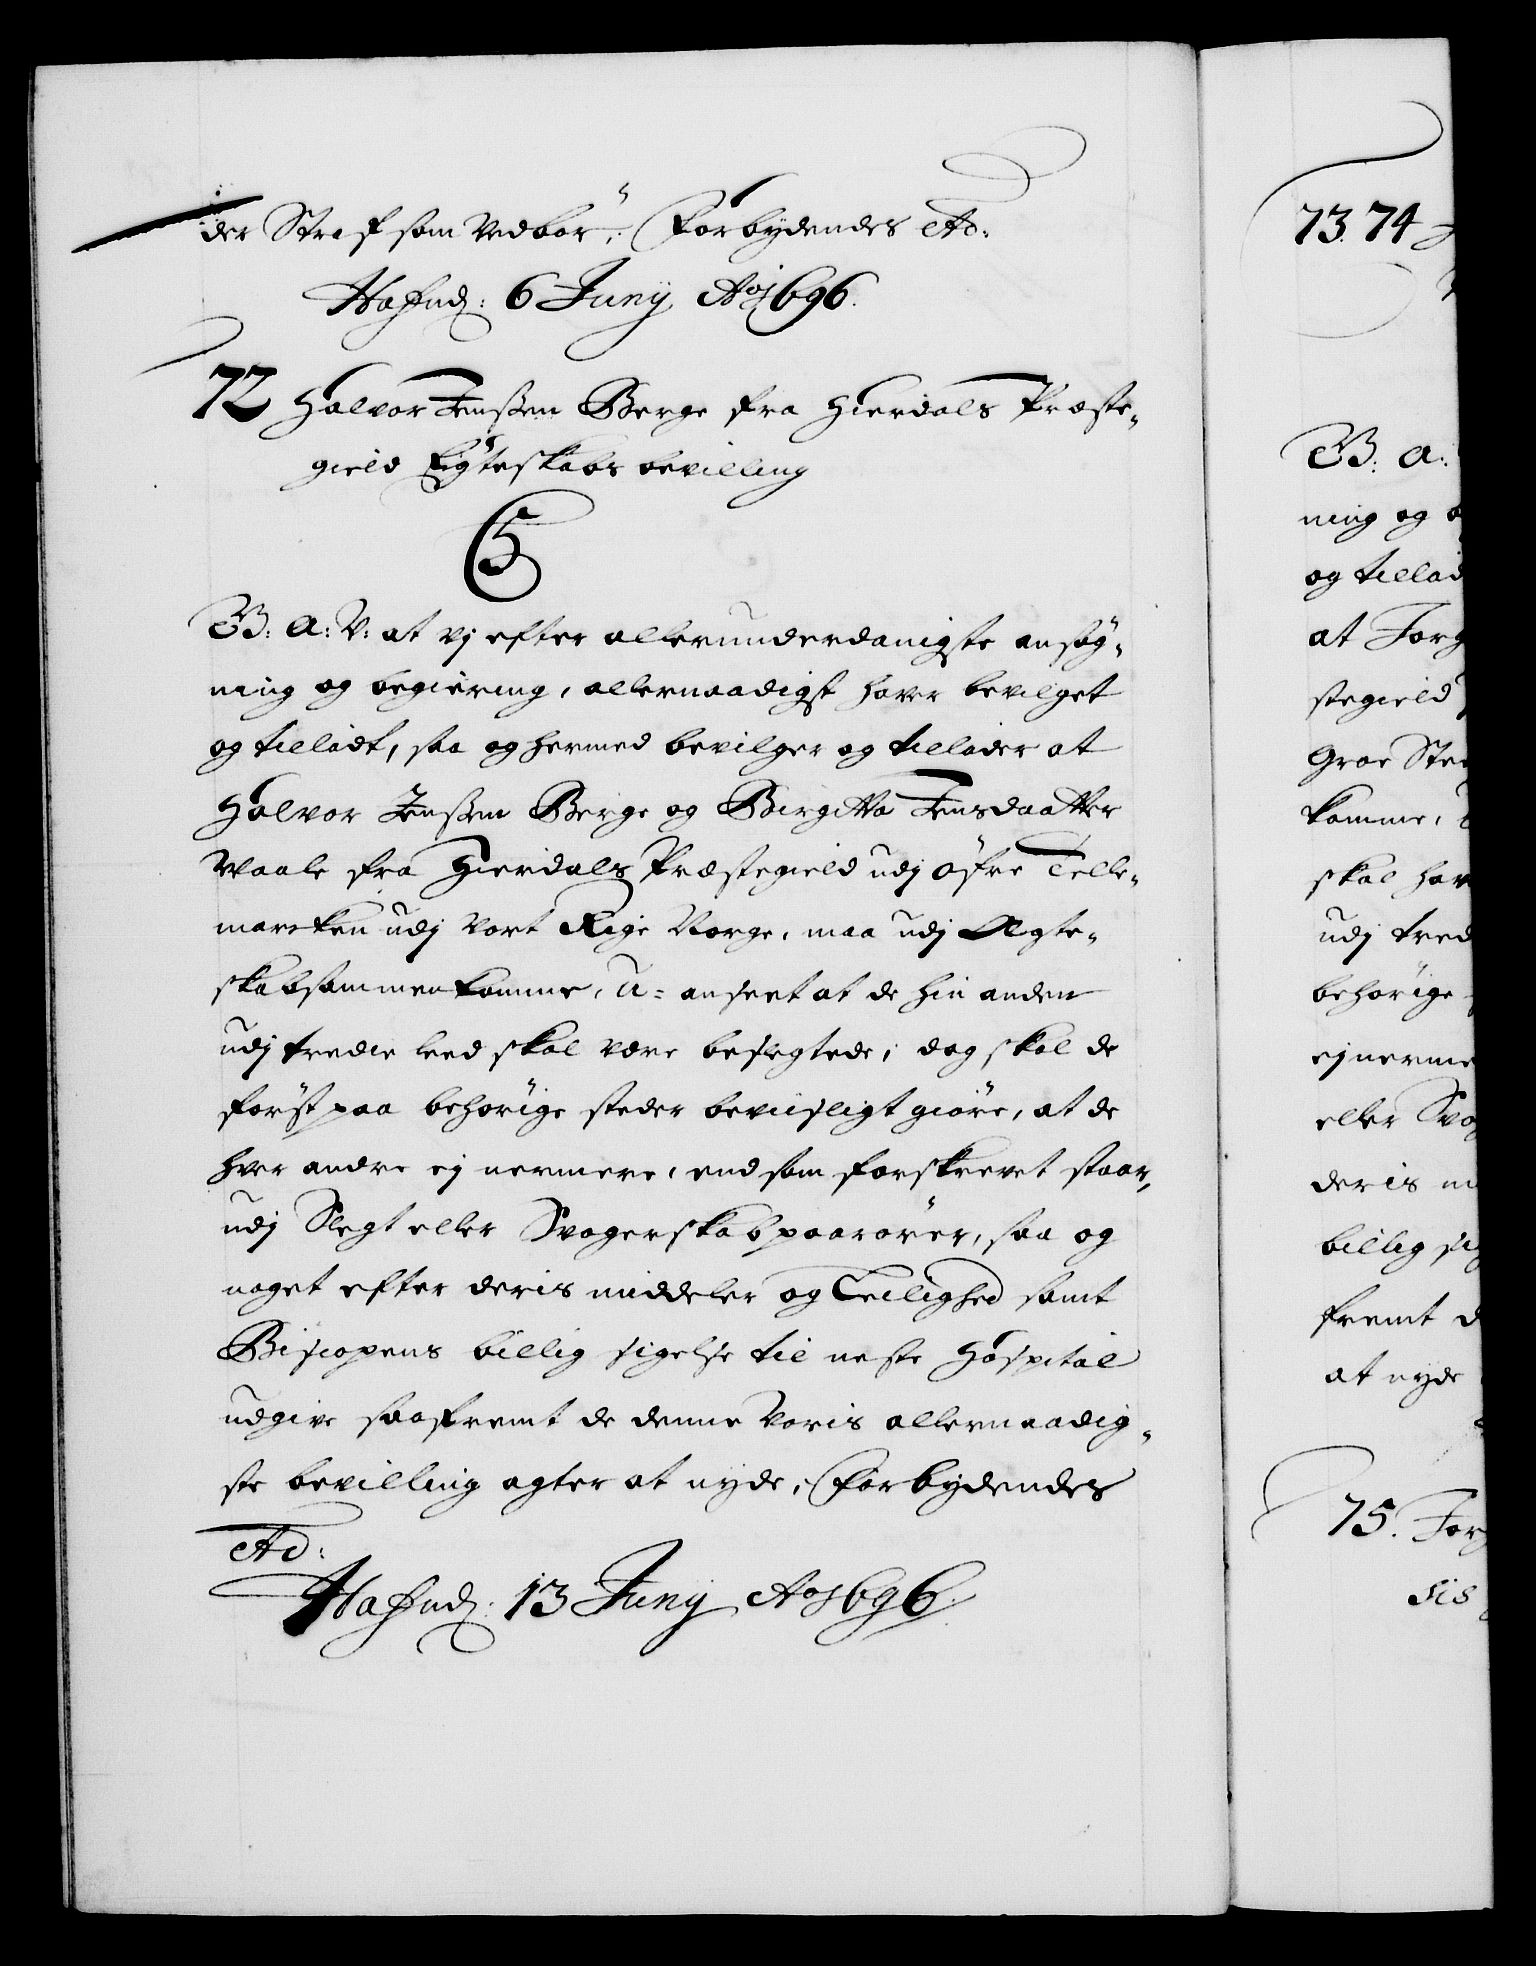 der Straf som vedbör, Forbydendes etc:
Hafnd: 6 Junij Ao 1696.
72 Halvor Jenssen Berge fra Hierdals Præste-
gield Egteskabs bevilling
C5
G: A: V: at vj efter allerunderdanigste ansög-
ning og begiering, allernaadigst haver bevilget
og tilladt, saa og hermed bevilger og tillader at
Halvor Jenssen Berge og Birgitta Jensdaatter
Waale fra Hierdals Præstegield udj öfre Telle-
marcken udj vort Rige Norge, maa udj Ægte-
skab sammenkomme, u-anseet at de hin anden
udj tredie leed skal være beslegtede; dog skal de
först paa behörige steder beviisligt giöre, at de
hver andre ej nermere, end som forskrevet staar,
udj Slegt eller Svogerskab paarörer, saa og
noget efter deris middeler og Leilighed samt
Biscopens billig sigelse til neste Hospital
udgive saafremt de denne voris allernaadig-
ste bevilling agter at nyde, Forbydendes
etc:
Hafnd: 13 Junij Ao 1696.
73. 74
G: A:
ning og
og tillad
at Jorg
stegield
Groe
komme,
skal hav
udj tred
behörige
ej nerme
eller Svog
deris
billig sig
fremt d
at nyde
75. Jorg